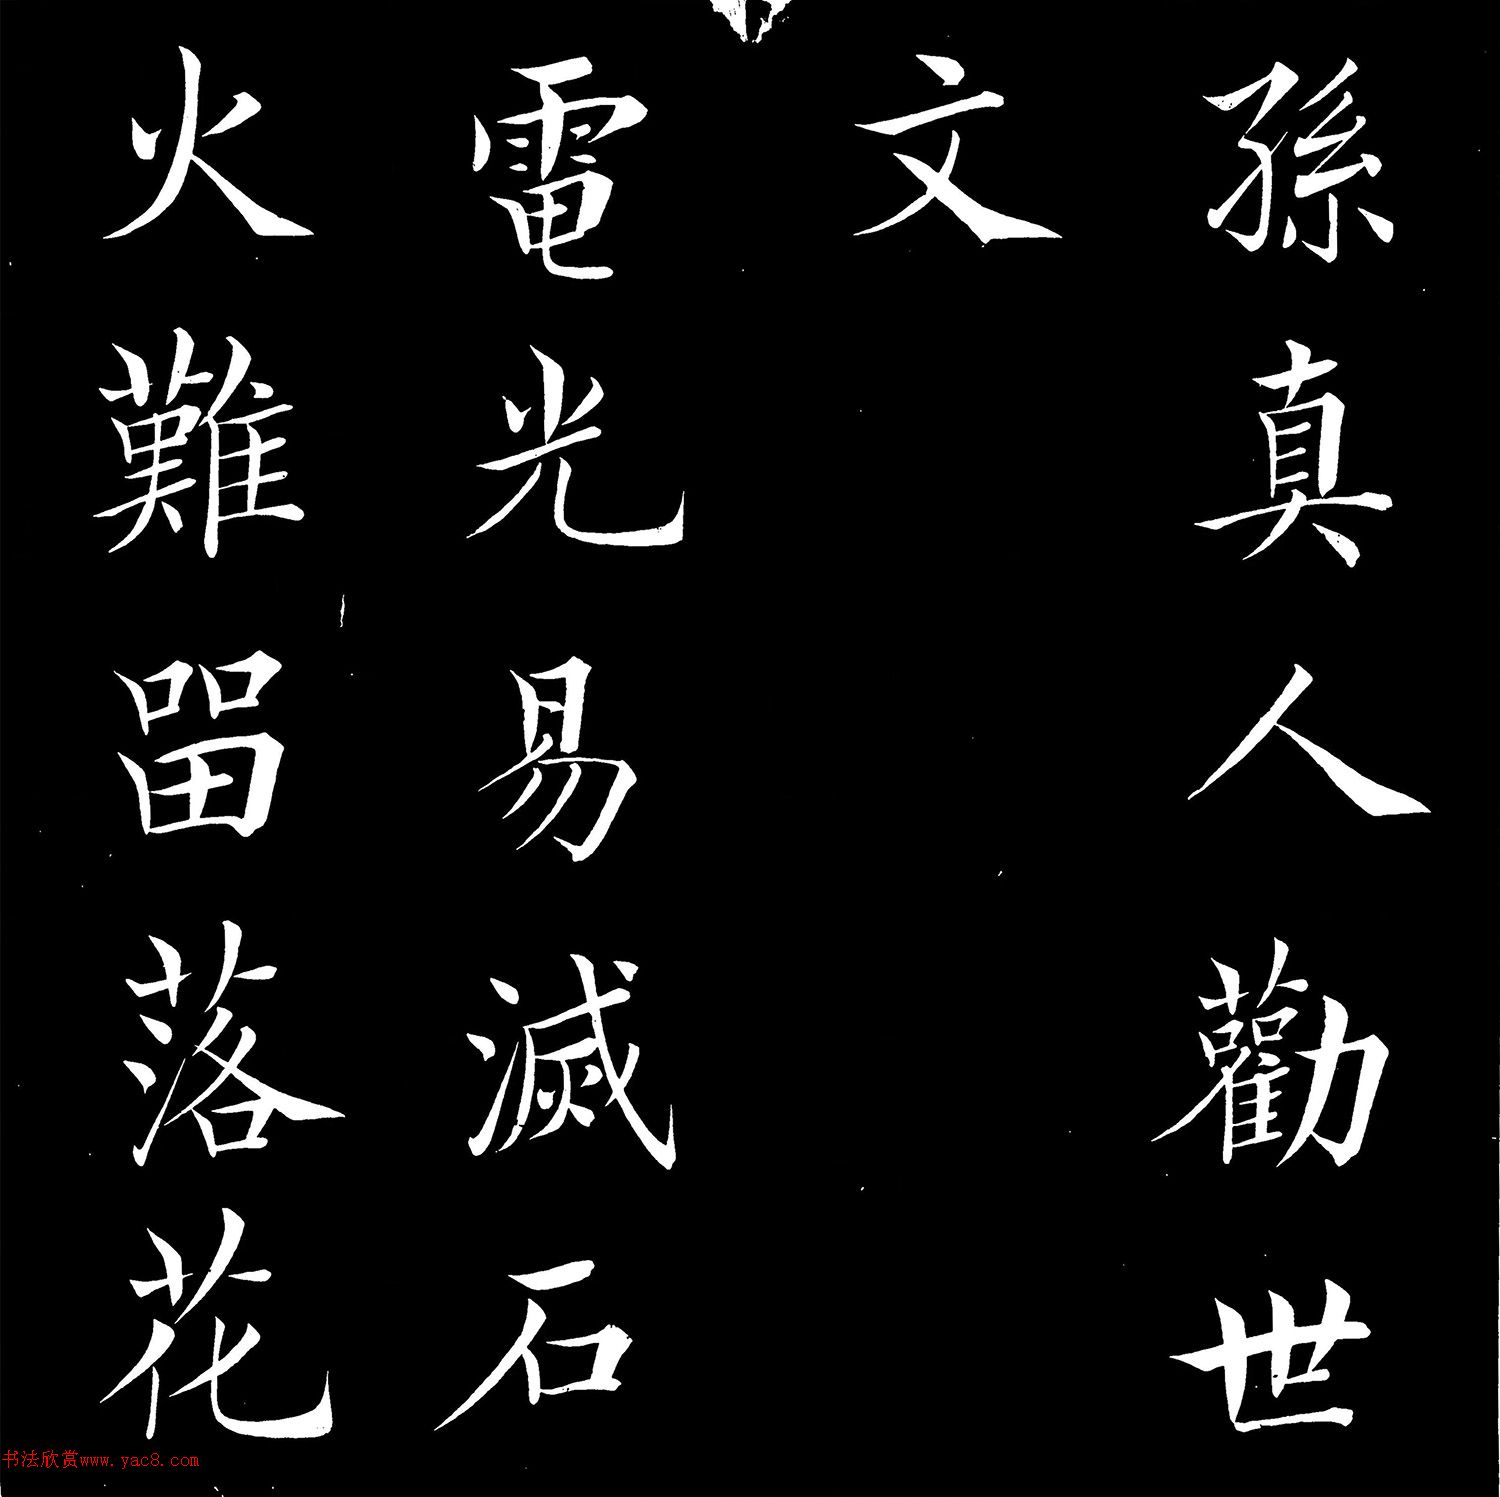 孫真人勸世
文
電光易滅石
火難留落花
书法欣赏www.yac8.com